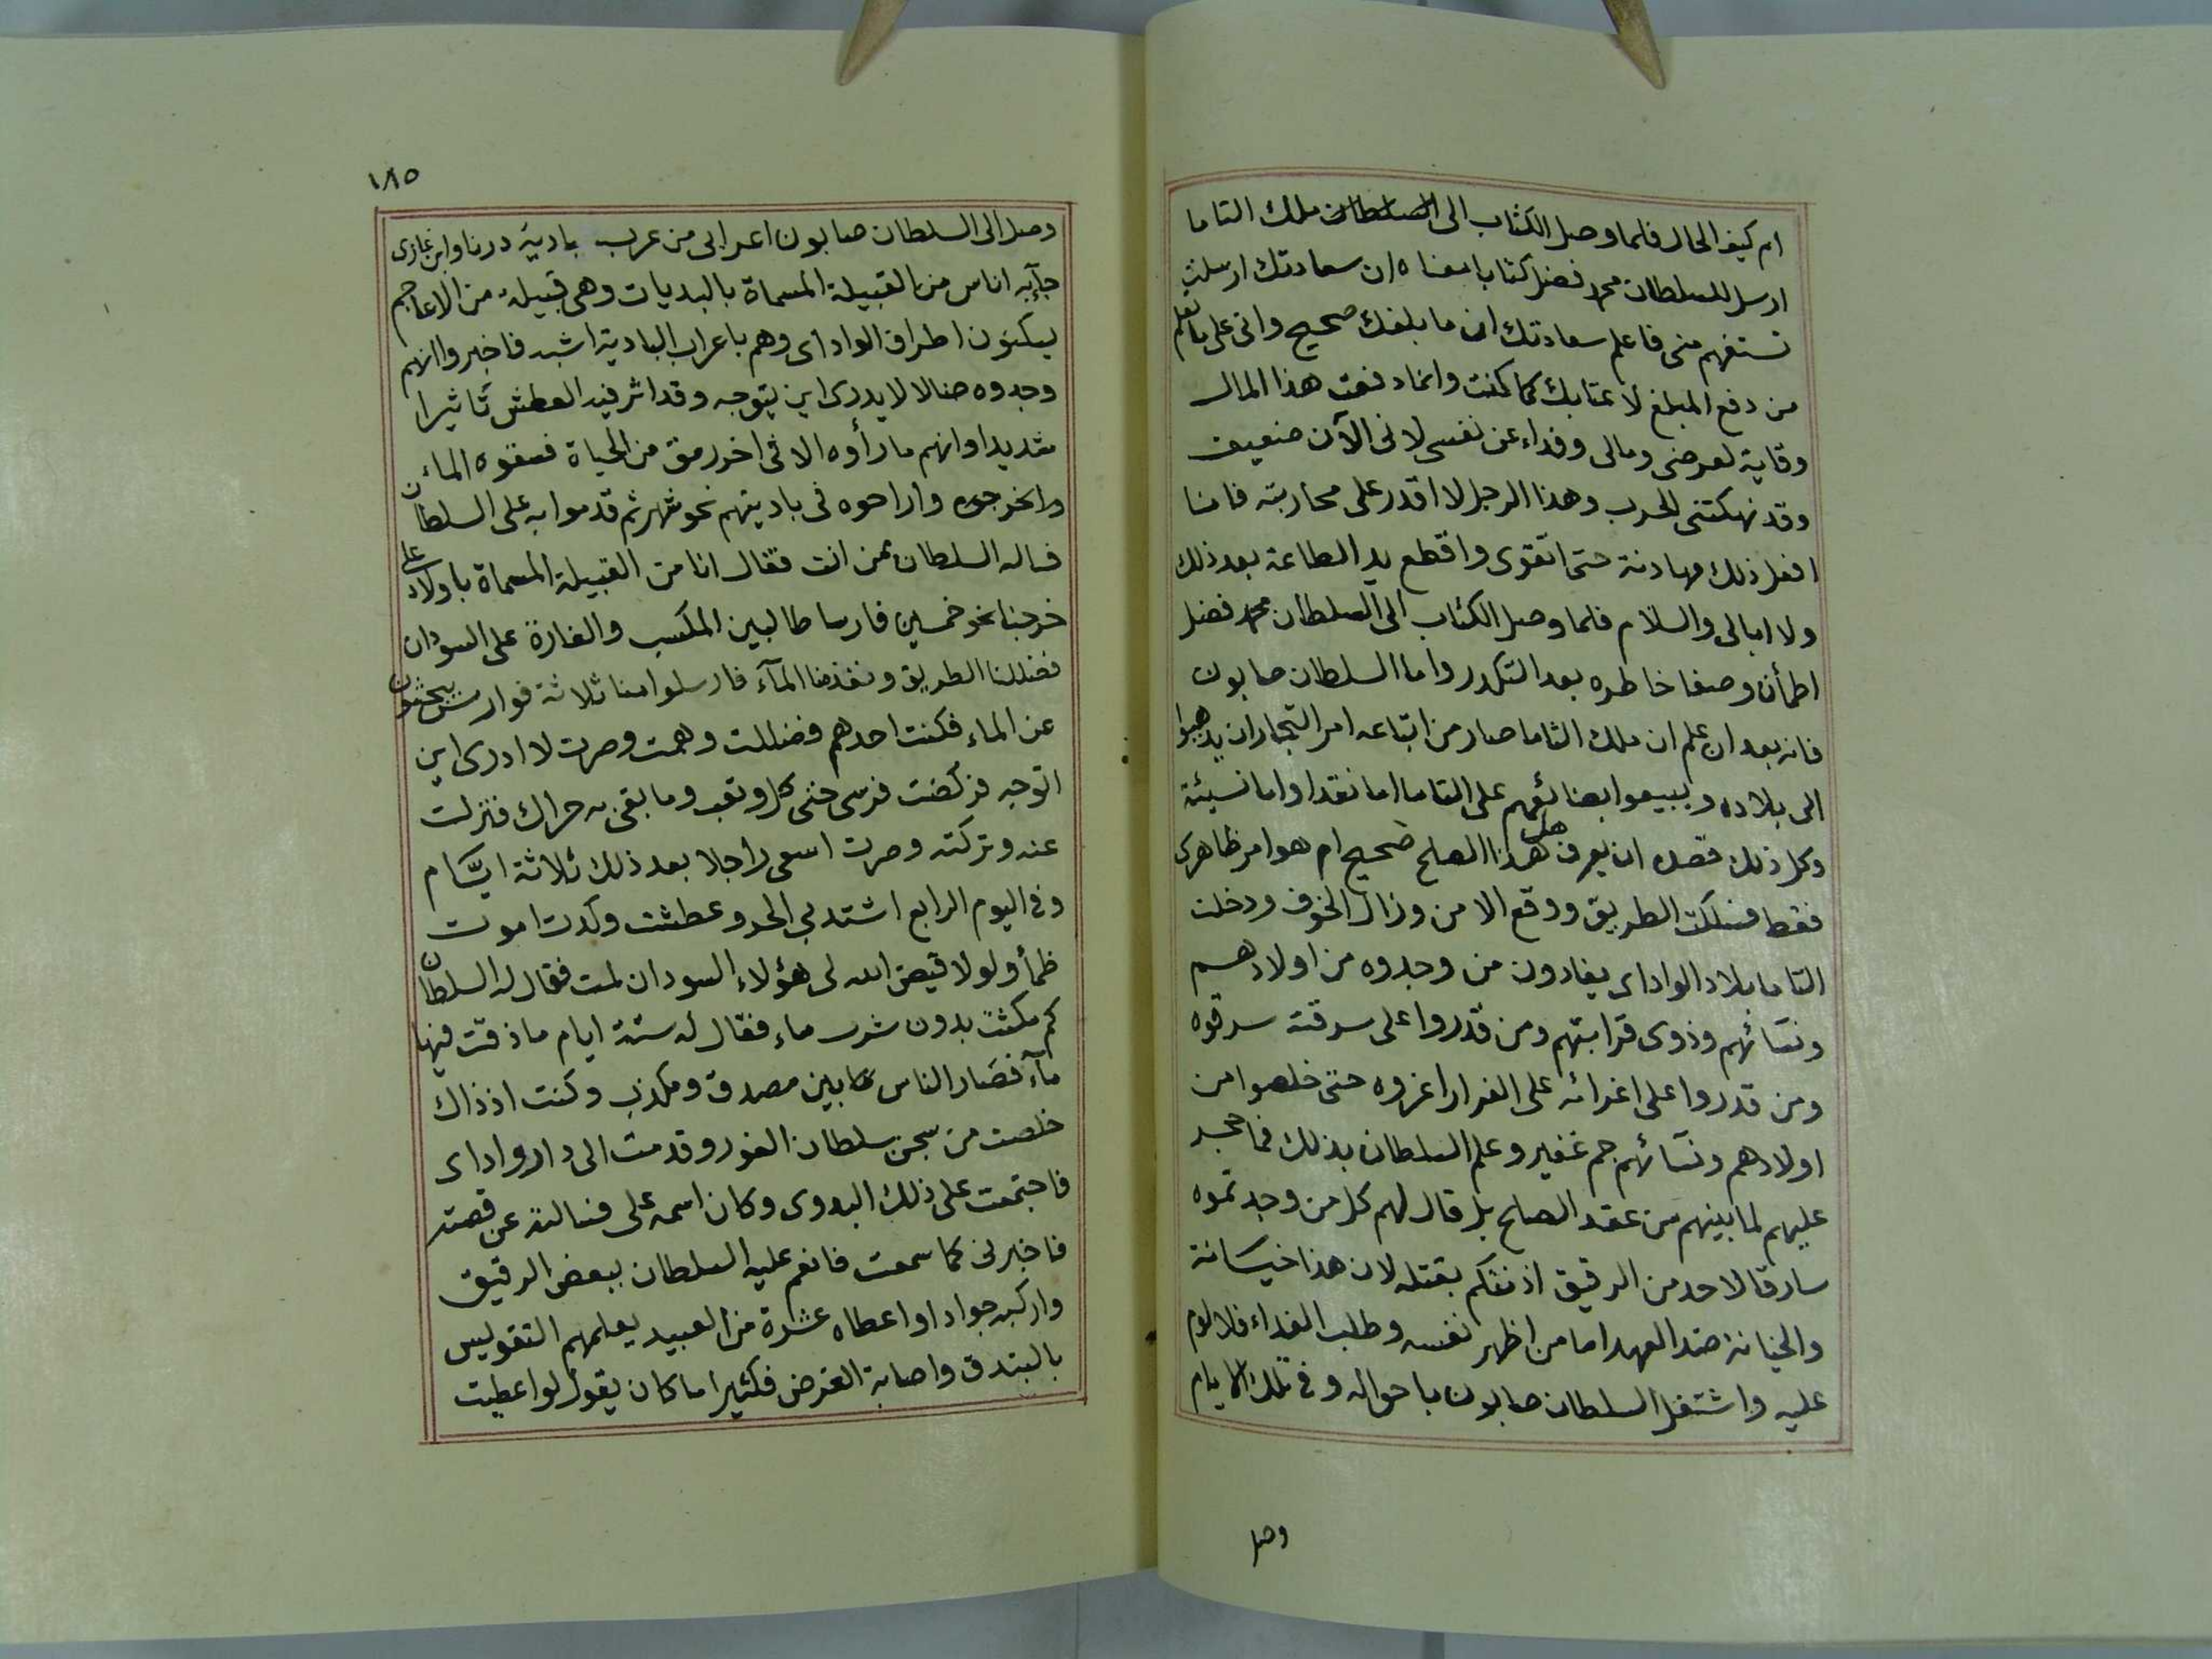 ام كيف الحال فلما وصل الكتاب الى السلطان ملك التاما
ارسل للسلطان محمد فضل كتابا معناه ان سعادتك ارسلت
تستفهم منى فاعلم سعادتك ان ما بلغك صحيح وانى على ما تعلم
من دفع المبلغ لاعتابك كما كنت وانما دفعت هذا المال
وقاية لعرضى ومالى وفداء عن نفسى لانى الآن ضعيف
وقد نهكتنى الحرب وهذا الرجل لا اقدر على محاربته فانا
افعل ذلك مهادنة حتى اتقوى واقطع يد الطاعة بعد ذلك
ولا ابالى والسلام فلما وصل الكتاب الى السلطان محمد فضل
اطمأن وصفا خاطره بعد التكدر واما السلطان صابون
فانه بعد ان علم ان ملك التاما صار من اتباعه امر التجار ان يذهبوا
الى بلاده ويبيعوا بضائعهم على التاما اما نقدا واما نسيئة
وكل ذلك قصده ان يعرف هل هذا الصلح صحيح ام هو امر ظاهرى
فقط فسلكت الطريق ووقع الامن وزال الخوف ودخلت
التاما بلاد الواداى يفادون من وجدوه من اولادهم
ونسائهم وذوى قرابتهم ومن قدروا على سرقته سرقوه
ومن قدروا على اغرائه على الفرار اغروه حتى خلصوا من
اولادهم ونسائهم جم غفير وعلم السلطان بذلك فما حجر
عليهم لما بينهم من عقد الصلح بل قال لهم كل من وجدتموه
سارقا لاحد من الرقيق اذنتكم بقتله لان هذا خيانة
والخيانة ضد العهد اما من اظهر نفسه وطلب الفداء فلا لوم
عليه واشتغل السلطان صابون باحواله وفى تلك الايام
وصل
١٨٥
وصل الى السلطان صابون اعرابى من عرب بادية درنا وابن غازى
جآ به اناس من القبيلة المسماة بالبديات وهى قبيلة من الاعاجم
يسكنون اطراف الواداى وهم باعراب البادية اشبه فاخبروا انهم
وجدوه ضالا لا يدرى اين يتوجه وقد اثر فيه العطش تأثيرا
شديدا وانهم ما رأوه الا فى اخر رمق من الحياة فسقوه الماء
واخرجوه واراحوه فى باديتهم نحو شهر ثم قدموا به على السلطان
فساله السلطان ممن انت فقال انا من القبيلة المسماة باولاد على
خرجنا نحو خمسين فارسا طالبين المكسب والغارة على السودان
فضللنا الطريق ونفذ منا المآء فارسلوا منا ثلاثة فوارس يبحثون
عن الماء فكنت احدهم فضللت وهمت وصرت لا ادرى اين
اتوجه فركضت فرسى حتى كل وتعب وما بقى به حراك فنزلت
عنه وتركته وصرت اسعى راجلا بعد ذلك ثلاثة ايّام
وفى اليوم الرابع اشتد بى الحر وعطشت وكدت اموت
ظمأ ولولا قيض الله لى هؤلاء السودان لمت فقال له السلطان
كم مكثت بدون شرب ماء فقال له ستة ايام ما ذقت فيها
مآء فصار الناس ما بين مصدق ومكذب وكنت اذ ذاك
خلصت من سجن سلطان الفور وقدمت الى دار واداى
فاجتمعت على ذلك البدوى وكان اسمه على فسالته عن قصته
فاخبرنى كما سمعت فانعم عليه السلطان ببعض الرقيق
واركبه جوادا واعطاه عشرة من العبيد يعلمهم التقويس
بالبندق واصابة الغرض فكثيرا ما كان يقول لو اعطيت